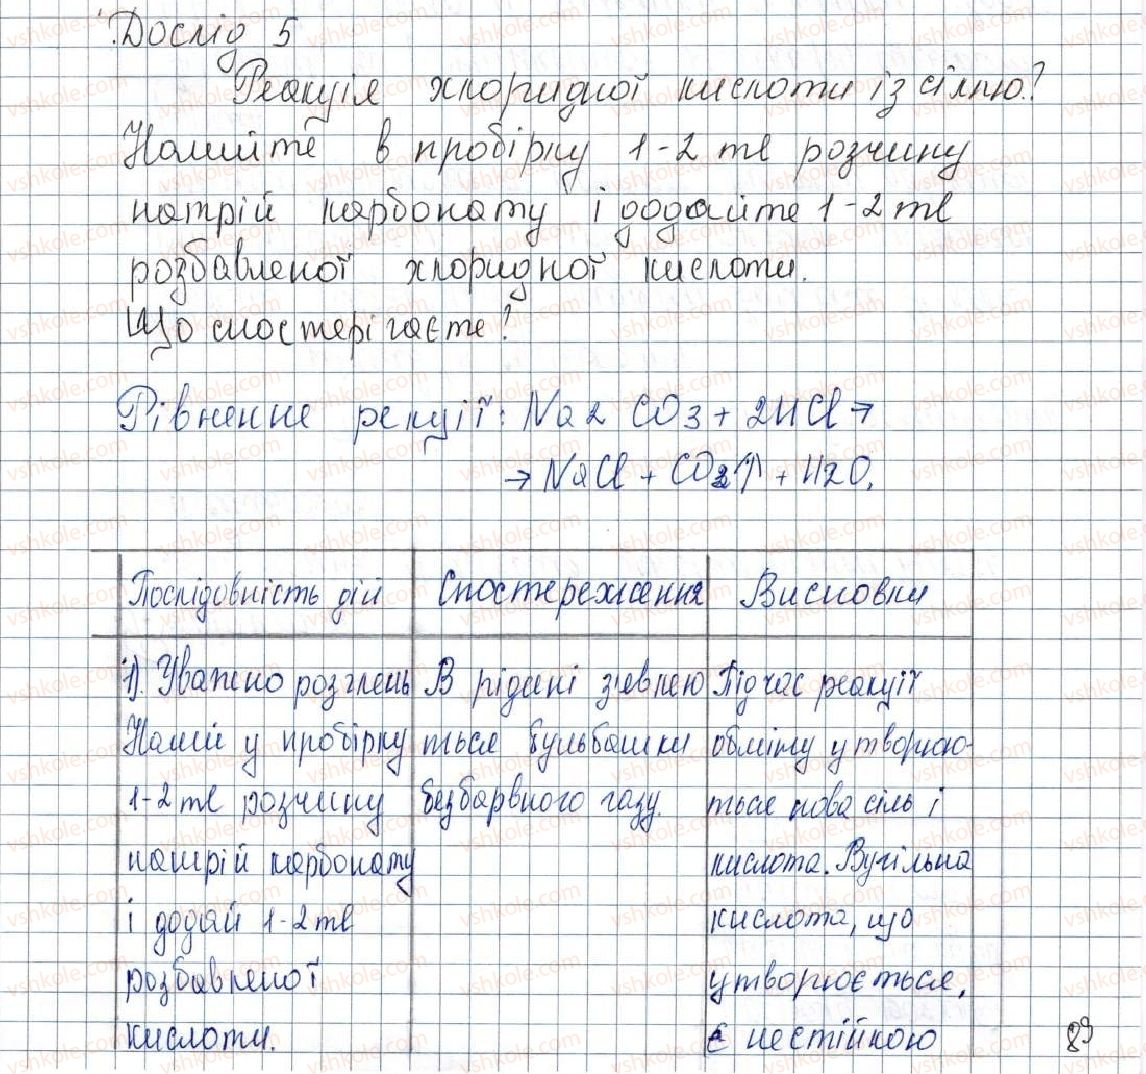 Дослід 5
Реакція хлоридної кислоти із сіллю?
Налийте в пробірку 1-2 мл розчину
натрій карбонату і додайте 1-2 мл
розбавленої хлоридної кислоти.
Що спостерігаєте?
Рівнення рекції: Na2 CO3 + 2HCl →
→ NaCl + CO2↑ + H2O.
Послідовність дій Спостереження Висновки
1). Уважно розглень В рідині з'явлею Під час реакції
Налий у пробірку ться бульбашки обміну утворює-
1-2 мл розчину безбарвного газу. ться нова сіль і
натрій карбонату кислота. Вугільна
і додай 1-2 мл кислота, що
розбавленої утворюється,
кислоти. є нестійкою
89
vshkole.com